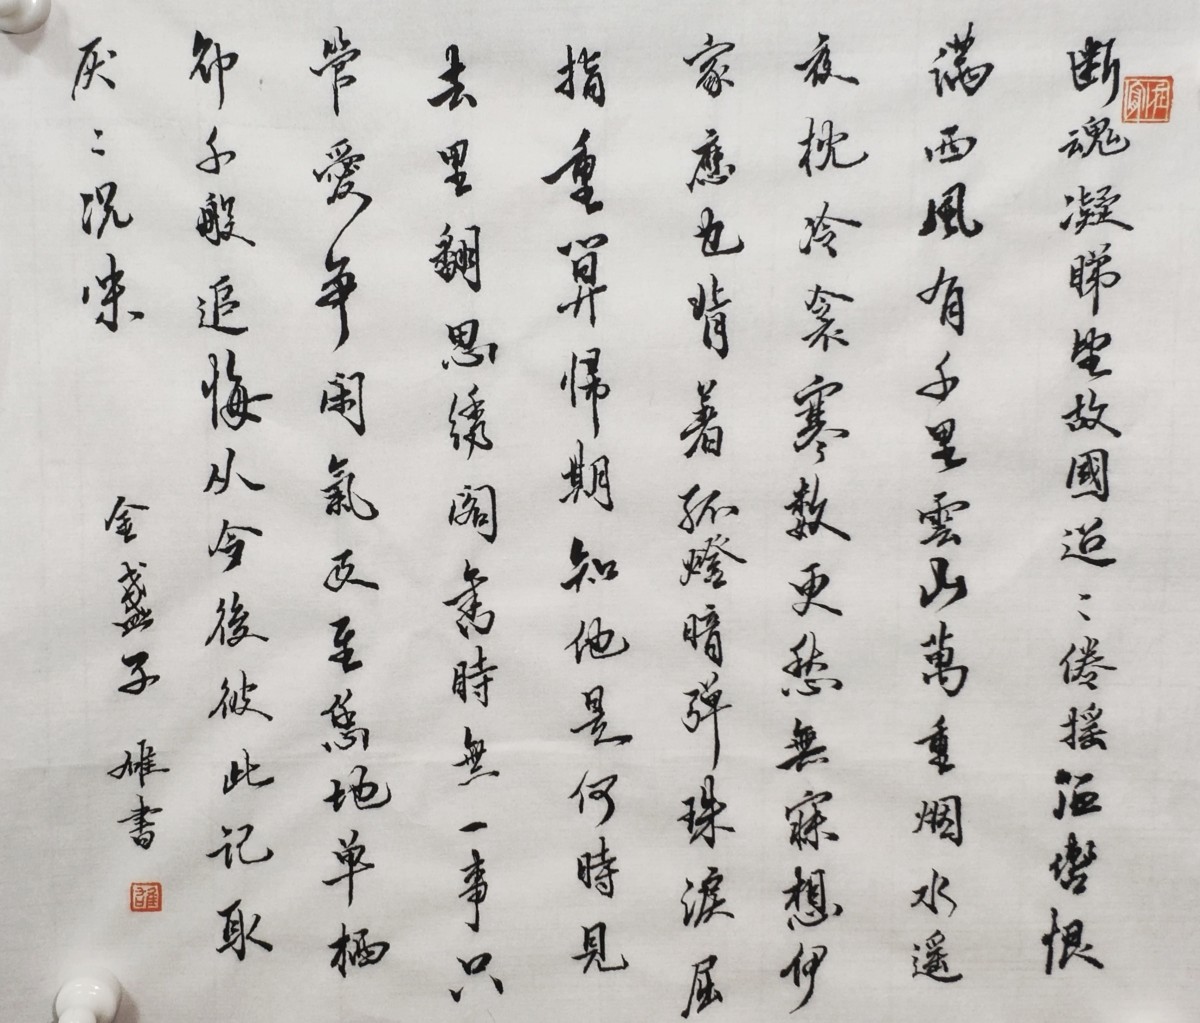 断魂凝睇望故國迢〻倦摇征轡恨
满西風有千里雲山萬重烟水遥
夜枕冷衾寒数更愁無寐想伊
家應也背着孤燈暗弹珠淚屈
指重算帰期知他是何時見
去里翻思绣阁舊時無一事只
管愛争闲氣及至恁地单栖
却千般追悔从今後彼此记取
厌〻况味
金盏子 雄書